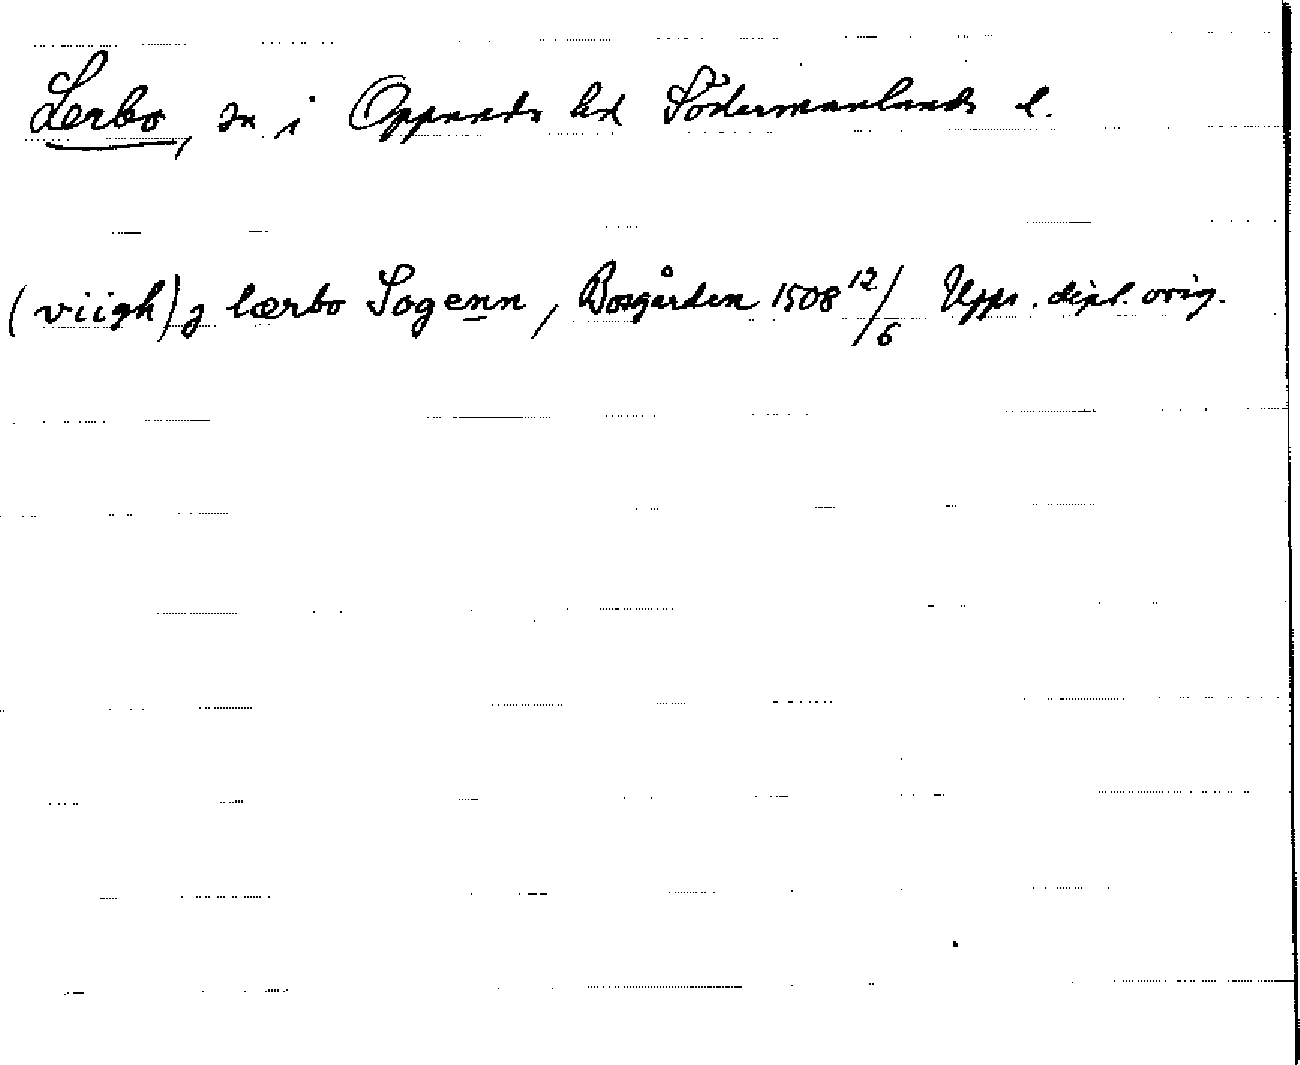 Lerbo, sn i Oppunds hd Södermanlands l.
(viigh) j lærbo Sogenn, Bosgården 1508 12/6 Upps. dipl. orig.